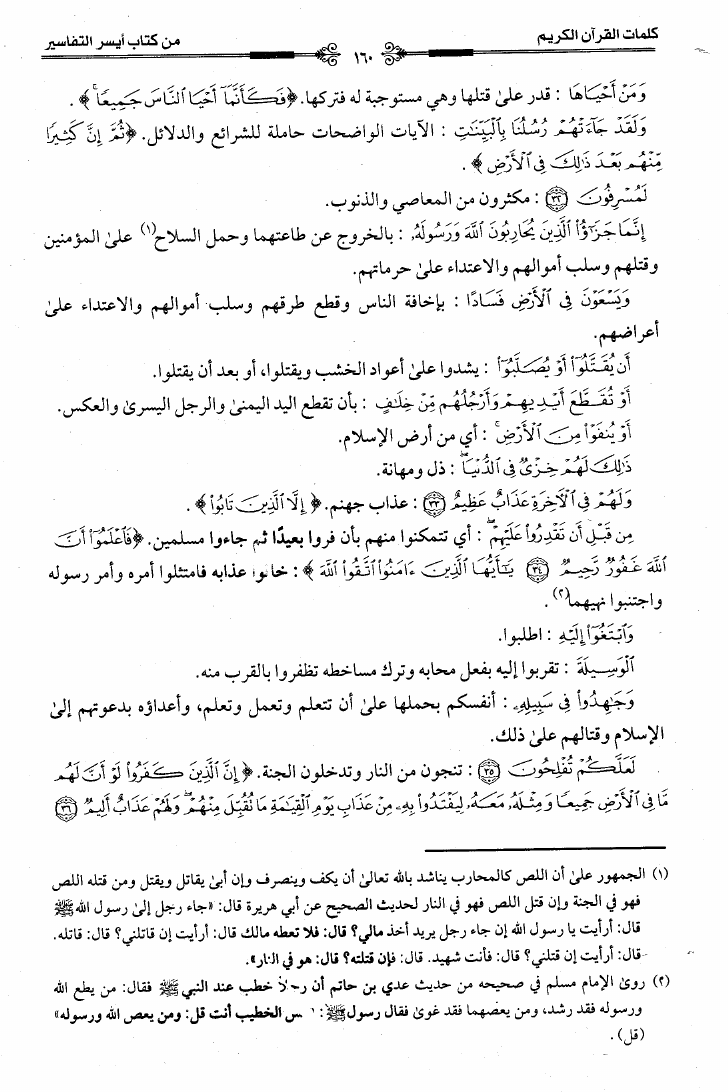 كلمات القرآن الكريم
١٦٠
من كتاب أيسر التفاسير
وَمَنْ أَحْيَاهَا : قدر على قتلها وهي مستوجبة له فتركها. ﴿فَكَأَنَّمَآ أَحْيَا ٱلنَّاسَ جَمِيعًا ۚ﴾ .
وَلَقَدْ جَآءَتْهُمْ رُسُلُنَا بِٱلْبَيِّنَٰتِ : الآيات الواضحات حاملة للشرائع والدلائل. ﴿ثُمَّ إِنَّ كَثِيرًا
مِّنْهُم بَعْدَ ذَٰلِكَ فِى ٱلْأَرْضِ ﴾ .
لَمُسْرِفُونَ ٣٢ : مكثرون من المعاصي والذنوب.
إِنَّمَا جَزَٰٓؤُا۟ ٱلَّذِينَ يُحَارِبُونَ ٱللَّهَ وَرَسُولَهُۥ : بالخروج عن طاعتهما وحمل السلاح(١) على المؤمنين
وقتلهم وسلب أموالهم والاعتداء على حرماتهم.
وَيَسْعَوْنَ فِى ٱلْأَرْضِ فَسَادًا : بإخافة الناس وقطع طرقهم وسلب أموالهم والاعتداء على
أعراضهم.
أَن يُقَتَّلُوٓا۟ أَوْ يُصَلَّبُوٓا۟ : يشدوا على أعواد الخشب ويقتلوا، أو بعد أن يقتلوا.
أَوْ تُقَطَّعَ أَيْدِيهِمْ وَأَرْجُلُهُم مِّنْ خِلَٰفٍ : بأن تقطع اليد اليمنى والرجل اليسرى والعكس.
أَوْ يُنفَوْا۟ مِنَ ٱلْأَرْضِ ۚ : أي من أرض الإسلام.
ذَٰلِكَ لَهُمْ خِزْىٌ فِى ٱلدُّنْيَا ۖ : ذل ومهانة.
وَلَهُمْ فِى ٱلْأَخِرَةِ عَذَابٌ عَظِيمٌ ٣٣ : عذاب جهنم. ﴿ إِلَّا ٱلَّذِينَ تَابُوا۟ ﴾ .
مِن قَبْلِ أَن تَقْدِرُوا۟ عَلَيْهِمْ ۖ : أي تتمكنوا منهم بأن فروا بعيدًا ثم جاءوا مسلمين. ﴿فَٱعْلَمُوٓا۟ أَنَّ
ٱللَّهَ غَفُورٌ رَّحِيمٌ ٣٤ يَٰٓأَيُّهَا ٱلَّذِينَ ءَامَنُوا۟ ٱتَّقُوا۟ ٱللَّهَ ﴾ : خافوا عذابه فامتثلوا أمره وأمر رسوله
واجتنبوا نهيهما(٢) .
وَٱبْتَغُوٓا۟ إِلَيْهِ : اطلبوا.
ٱلْوَسِيلَةَ : تقربوا إليه بفعل محابه وترك مساخطه تظفروا بالقرب منه.
وَجَٰهِدُوا۟ فِى سَبِيلِهِۦ : أنفسكم بحملها على أن تتعلم وتعمل وتعلم، وأعداؤه بدعوتهم إلى
الإسلام وقتالهم على ذلك.
لَعَلَّكُمْ تُفْلِحُونَ ٣٥ : تنجون من النار وتدخلون الجنة. ﴿ إِنَّ ٱلَّذِينَ كَفَرُوا۟ لَوْ أَنَّ لَهُم
مَّا فِى ٱلْأَرْضِ جَمِيعًا وَمِثْلَهُۥ مَعَهُۥ لِيَفْتَدُوا۟ بِهِۦ مِنْ عَذَابِ يَوْمِ ٱلْقِيَٰمَةِ مَا تُقُبِّلَ مِنْهُمْ ۖ وَلَهُمْ عَذَابٌ أَلِيمٌ ٣٦
(١) الجمهور على أن اللص كالمحارب يناشد بالله تعالى أن يكف وينصرف وإن أبى يقاتل ويقتل ومن قتله اللص
فهو في الجنة وإن قتل اللص فهو في النار لحديث الصحيح عن أبي هريرة قال: «جاء رجل إلى رسول الله ﷺ
قال: أرأيت يا رسول الله إن جاء رجل يريد أخذ مالي؟ قال: فلا تعطه مالك قال: أرأيت إن قاتلني؟ قال: قاتله.
قال: أرأيت إن قتلني؟ قال: فأنت شهيد. قال: فإن قتلته؟ قال: هو في النار».
(٢) روى الإمام مسلم في صحيحه من حديث عدي بن حاتم أن رجلاً خطب عند النبي ﷺ فقال: من يطع الله
ورسوله فقد رشد، ومن يعصهما فقد غوى فقال رسول ﷺ: س الخطيب أنت قل: ومن يعص الله ورسوله»
(قل) .